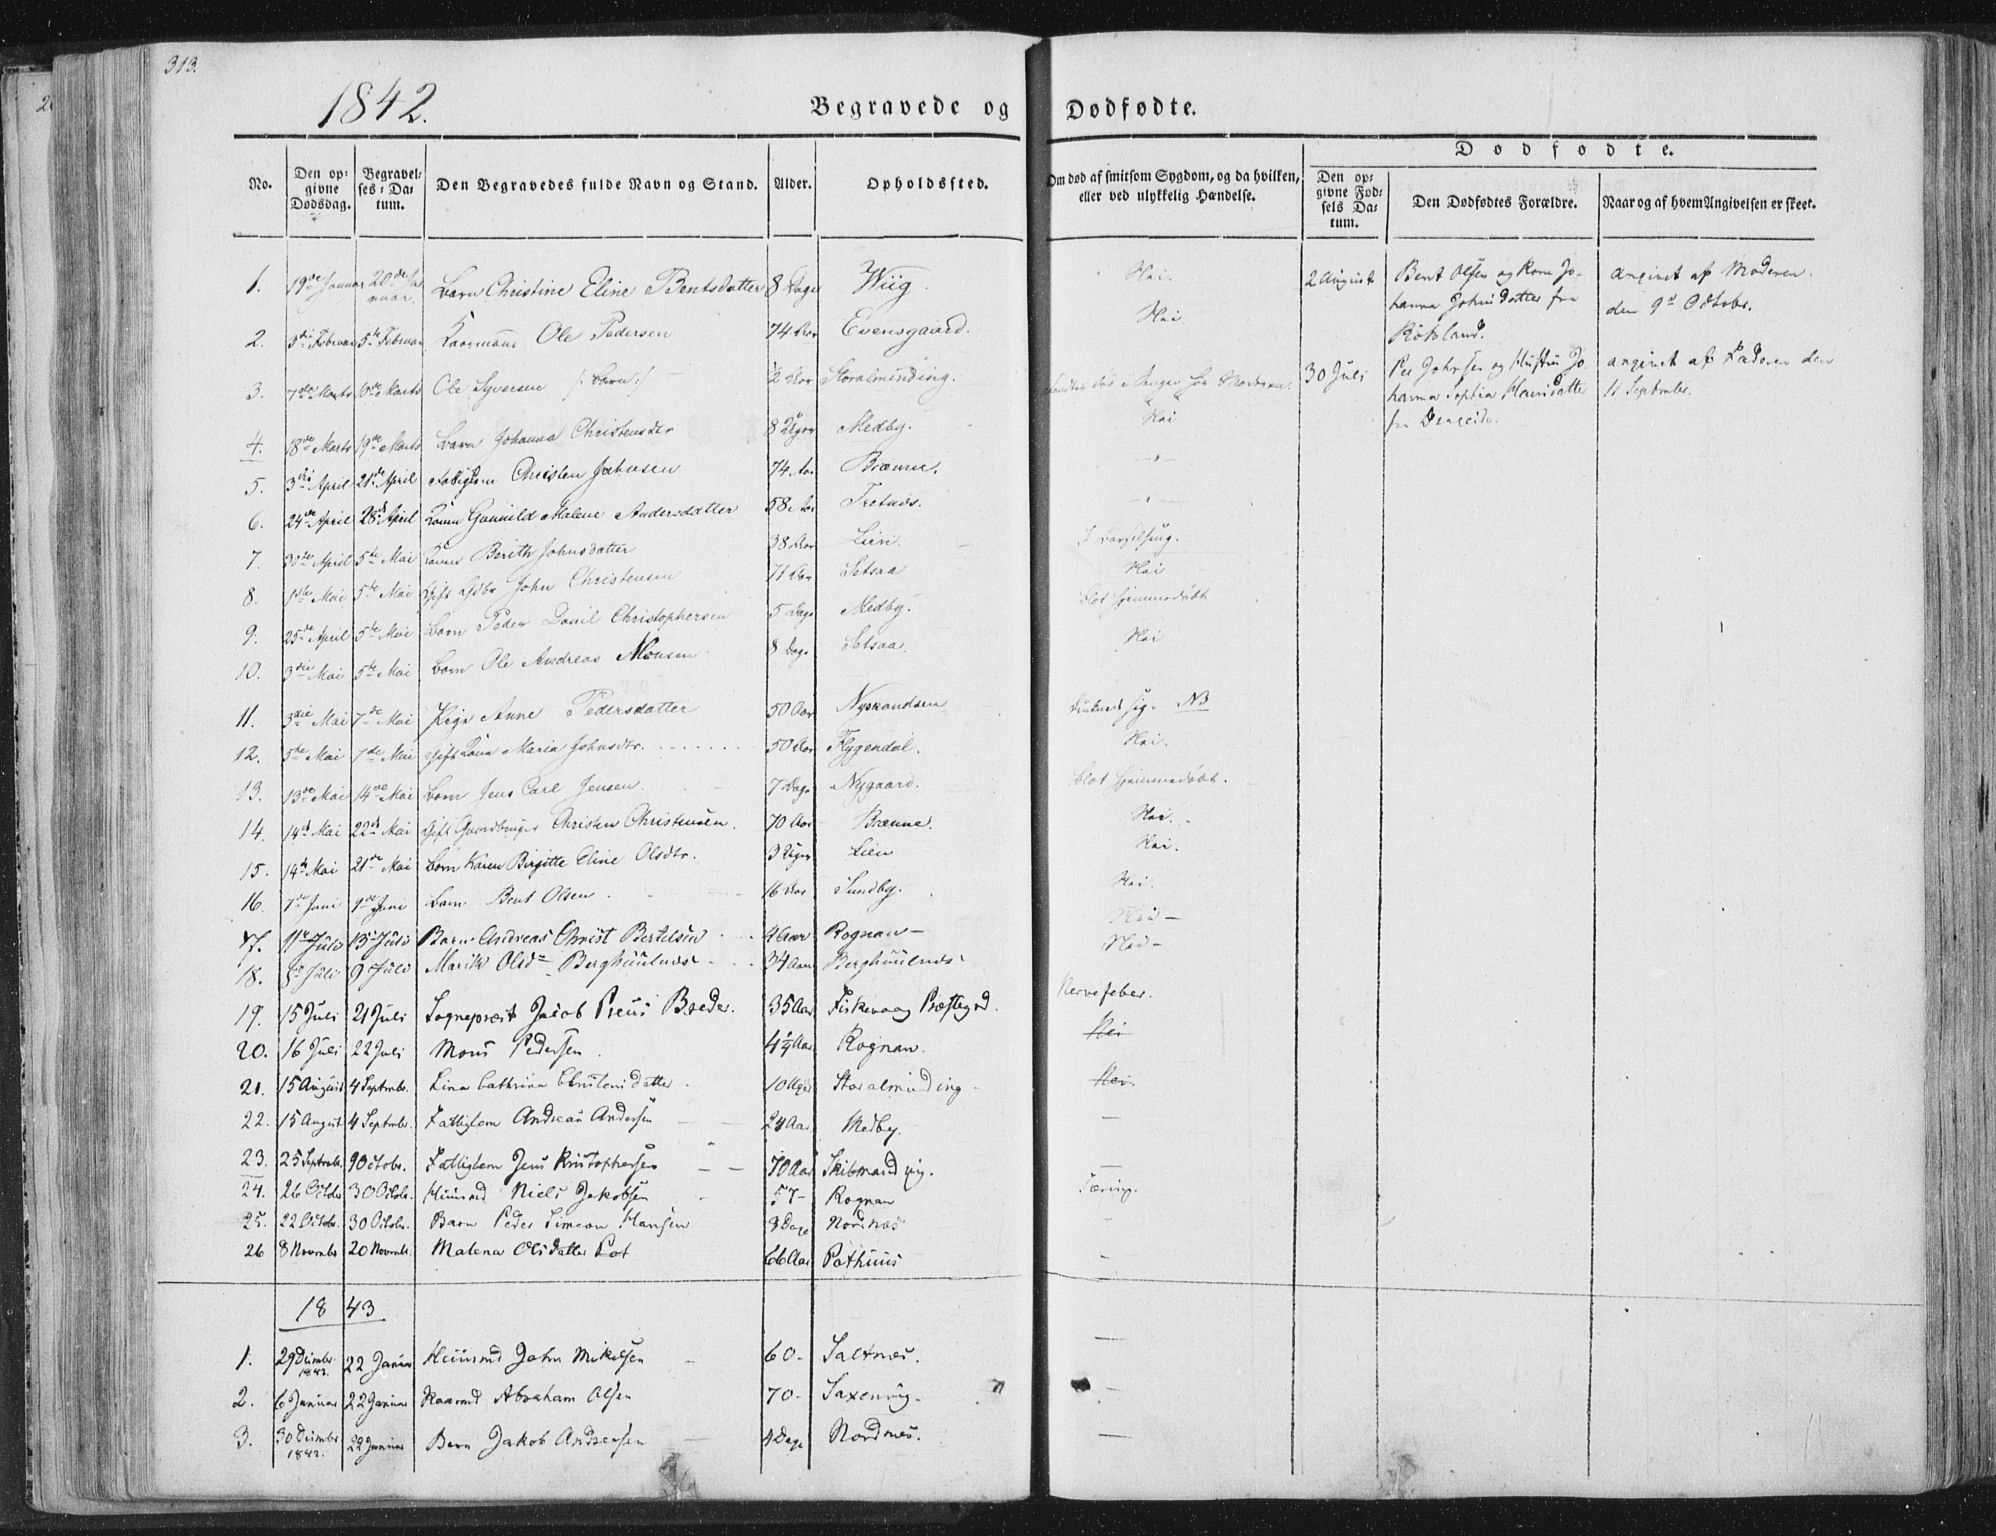 313.
1842.
Begravede og Dødfødte.
No.
Den opgivne Dødsdag.
Begravelses-Datum.
Den Begravedes fulde Navn og Stand.
Alder.
Opholdssted.
Om død af smitsom Sygdom, og da hvilken, eller ved ulykkelig Hændelse.
Dødfødte.
Den opgivne Fødsels Datum.
Den Dødfødtes Forældre.
Naar og af hvem Angivelsen er skeet.
1. 19de Januar 20de Januar. Barn Christine Eline Bentsdatter 8 Dage Wiig. Nei.
2. 3die Februar 5te Februar Ole Pedersen 74 Aar Evensgaard. Nei
3. 7de Marts 10de Marts Ole Syversen /: Barn :/ ½ Aar Storalminding.
4. 18de Marts 19de Marts Barn Johanna Christensdtr 8 Uger Medby. Nei
5. 3die April 21de April Fattiglem Christen Johnsen 74 Aar Brænne.
6. 24de April 28de April Kone Gunnild Malene Andersdatter 58 Aar Tretnæs.
7. 30te April 5te Mai Kone Berith Johnsdatter 38 Aar Lien. I Barselseng.
8. 1ste Mai 5te Mai Gift John Christensen 71 Aar Setsaa Nei
9. 25de April 5te Mai Barn Peder Daniel Christophersen 5 Dage Medby. blot hjemmedøbt
10. 3die Mai 5te Mai Barn Ole Andreas Monsen 8 Dage Setsaa. Nei
11. 3die Mai 7de Mai Pige Anne Pedersdatter 50 Aar Nysandsen druknet sig. NB
12. 5te Mai 7de Mai Gift Kone Maria Johnsdtr. 50 Aar Flygendal. Nei.
13. 13de Mai 14de Mai Barn Jens Carl Jensen. 7 Dage Nygaard. blot hjemmedøbt.
14. 14de Mai 22de Mai Gift Gaardbruger Christen Christensen. 70 Aar Brænne. Nei.
15. 14de Mai 21de Mai Barn Karen Birgitte Eline Olsdtr. 3 Uger Lien Nei.
16. 7de Juni 9de Juni Barn Bent Olsen 16 Aar Sundby. Nei.
17. 11te Juli 13de Juli Barn Andreas Christ Bertelsen 4 Aar Rognan – Nei –
18. 8de Juli 9de Juli Marik Olsdr Berghuulnæs 34 Aar Berghuulnæs Nei –
19. 15 Juli 21 Juli Sognepræst Jacob Preus Breder. 35 Aar Fiskevaag Præstegrd. Nervefeber.
20. 16 Juli 22 Juli Mons Pedersen 4¼ Aar Rognan. Nei
21. 15 August 4 Septmbr. Lina Cathrina Christensdatter 10 Uger Storalminding – Nei.
22. 15 August 4 Septmbr. Fattiglem Andreas Andersen 24 Aar Medby. –
23. 25 Septmbr. 9 Octobr. Fattiglem Jens Kristophersen 70 Aar Skibmandvig. –
24. 26 Octobr 30 Octobr. Huusmd Niels Jakobsen 57 – Rognan Tæring.
25. 22 Octobr. 30 Octobr. Barn Peder Simeon Hansen 8 Dage Nordnæs –
26 8 Novmbr 20 Novmbr. Malena Olsdatter Pot 66 Aar Pothuus –
2 August Bent Olsen og Kone Johanna Johnsdatter fra Røkland. angivet af Moderen den 9de Octobr.
30 Juli Per Johnsen og Hustru Johanna Sophia Hansdatter angivet af Faderen den 11 Septembr.
1843
1. 29 Decmbr. 1842. 22 Januar Huusmd John Mikelsen 60 – Saltnæs. –
2. 6 Januar 22 Januar Kaarmd Abraham Olsen 70 – Saxenvig – –
3. 30 Decmbr 1842. 22 Januar Barn Jakob Andreasen 4 Dage Nordnæs. –